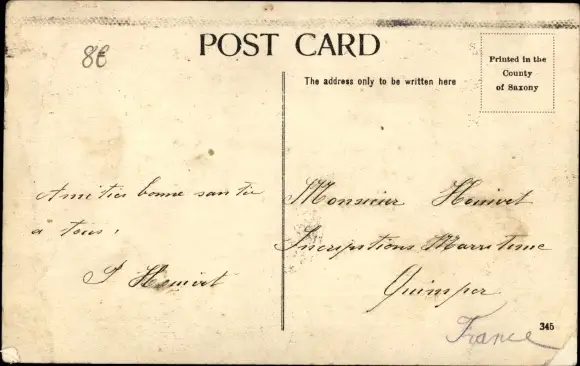 8€
POST CARD
Printed in the
County
of Saxony
The address only to be written here
Amitiés bonne santée
à tous,
Monsieur Hénivet
Inscriptions Marritime
Quimper
France
345